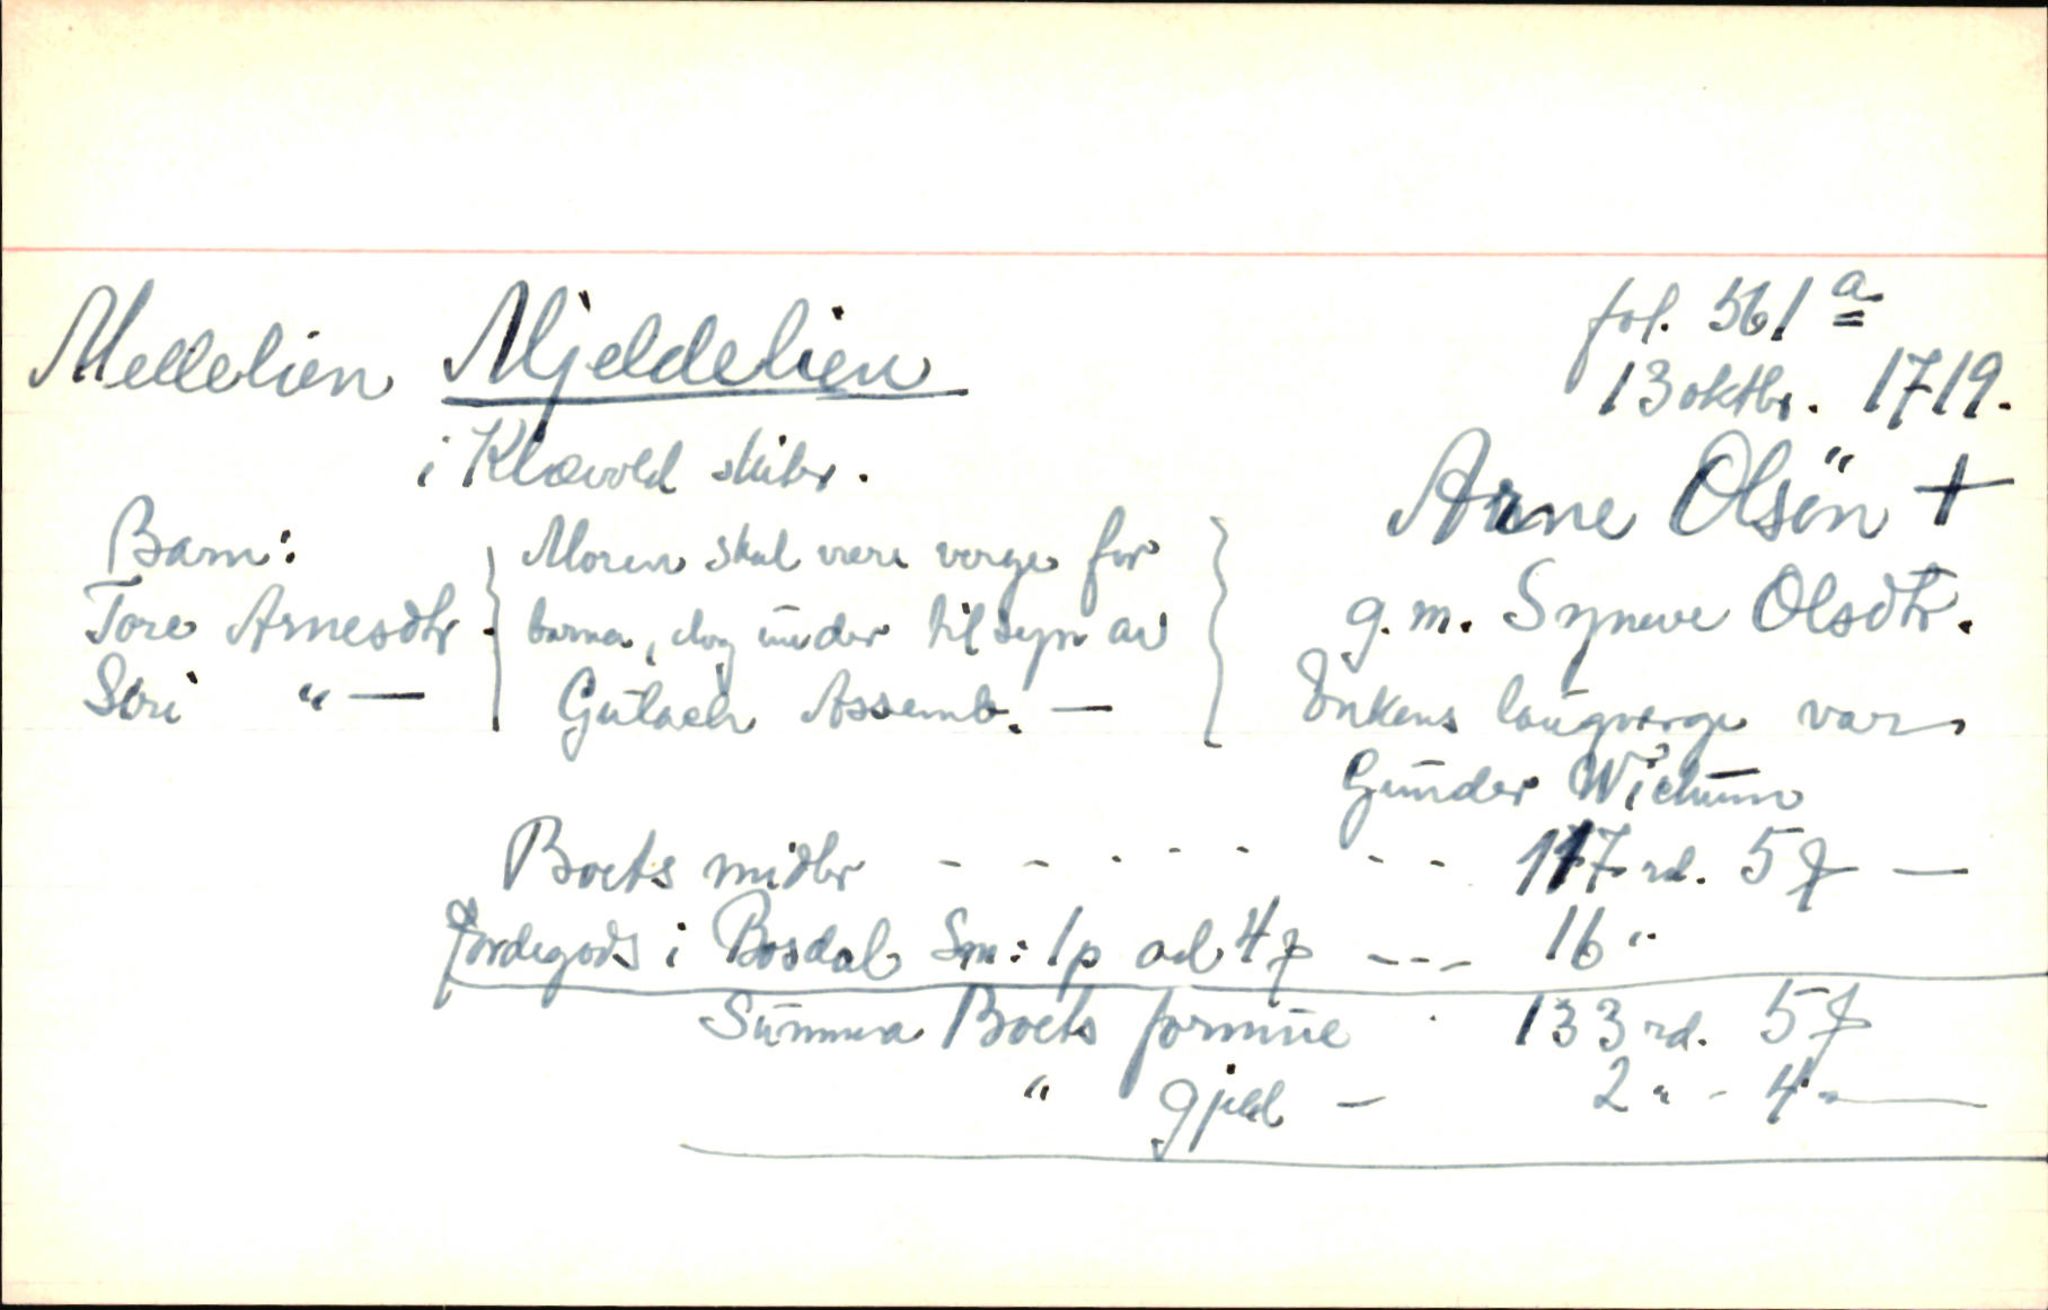 fol. 561 a
Mellelien Mjeldelien
13 oktbr. 1719.
i Klævold skibr.
Arne Olsen +
Barn:
Moren skal være verge for
Tore Arnesdtr.
barna, dog under tilsyn av
g.m. Syneve Olsdtr.
Siri " —
Gutach Assemb. —
Enkens laugverge var
Gunder Wichum
Boets midler - - - - - - - - 117 rd. 5 ƒ —
Jordegods i Bosdal Sm: 1 p ad 4 ƒ - - - 16 "
Summa Boets formue 133 rd. 5 ƒ
" gjeld — 2 " - 4 " —